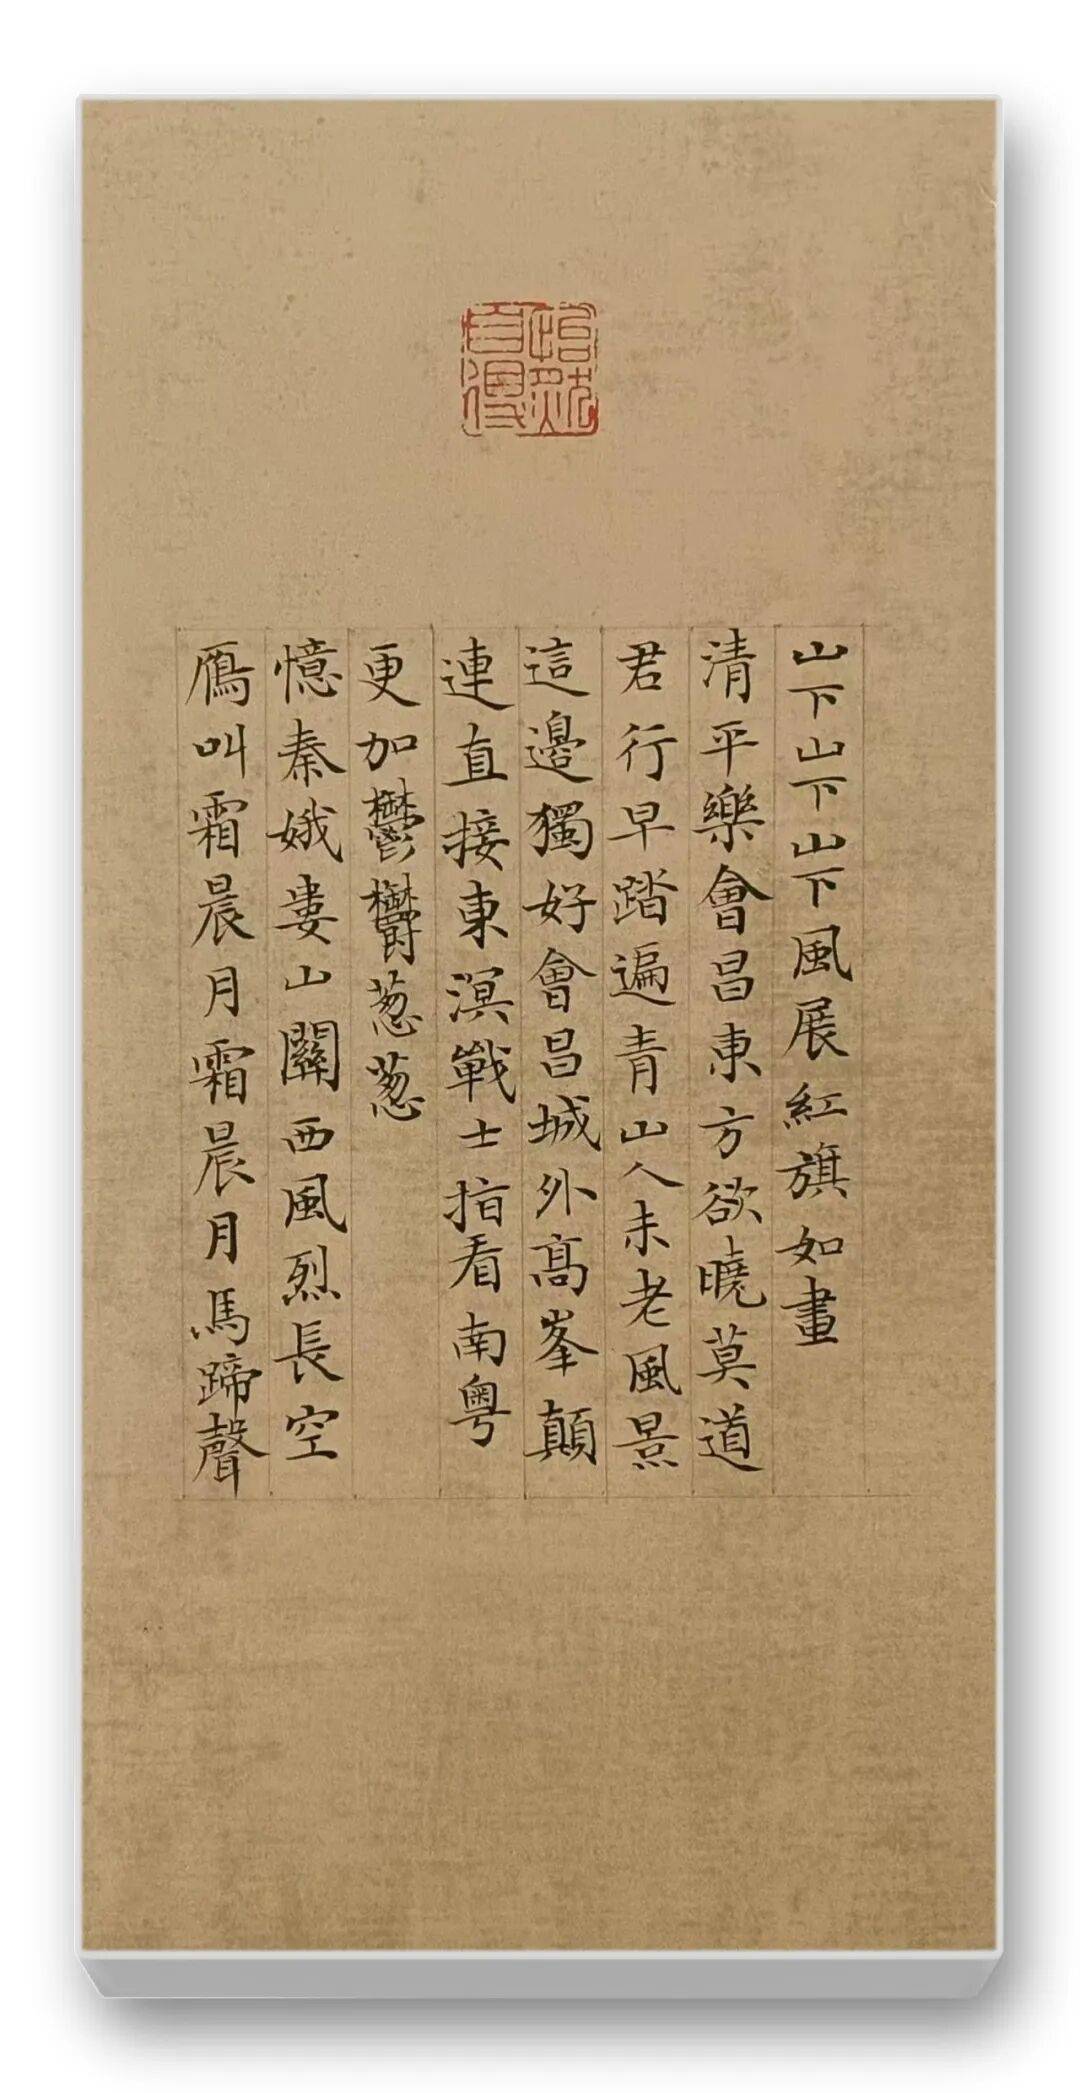 怡然自得
山下山下山下風展紅旗如畫
清平樂會昌東方欲曉莫道
君行早踏遍青山人未老風景
這邊獨好會昌城外髙峯顛
連直接東溟戰士指看南粵
更加鬱鬱葱葱
憶秦娥婁山關西風烈長空
鴈叫霜晨月霜晨月馬蹄聲